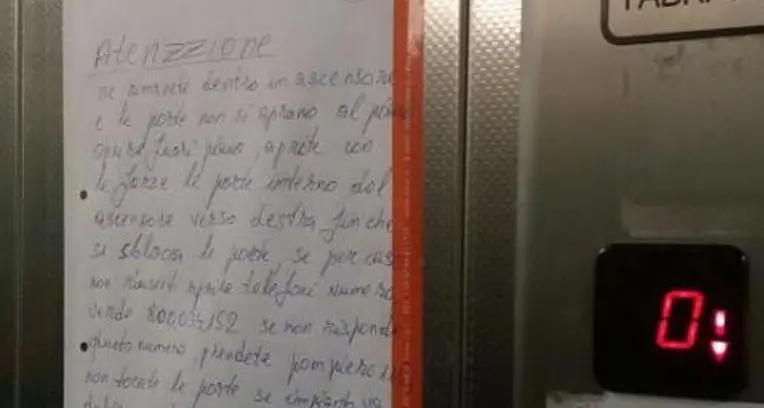 Atenzzione
se rimanete dentro in ascensore
e le porte non si aprano al piano
fuori piano, aprite con
le forze le porte interno dal
ascensore verso destra fin che
si sblocca le porte, se per caso
non riusciti aprite telefoni numero
verde 800034152 se non rispond
questo numero prendete pompieri
non tocate le porte se
0